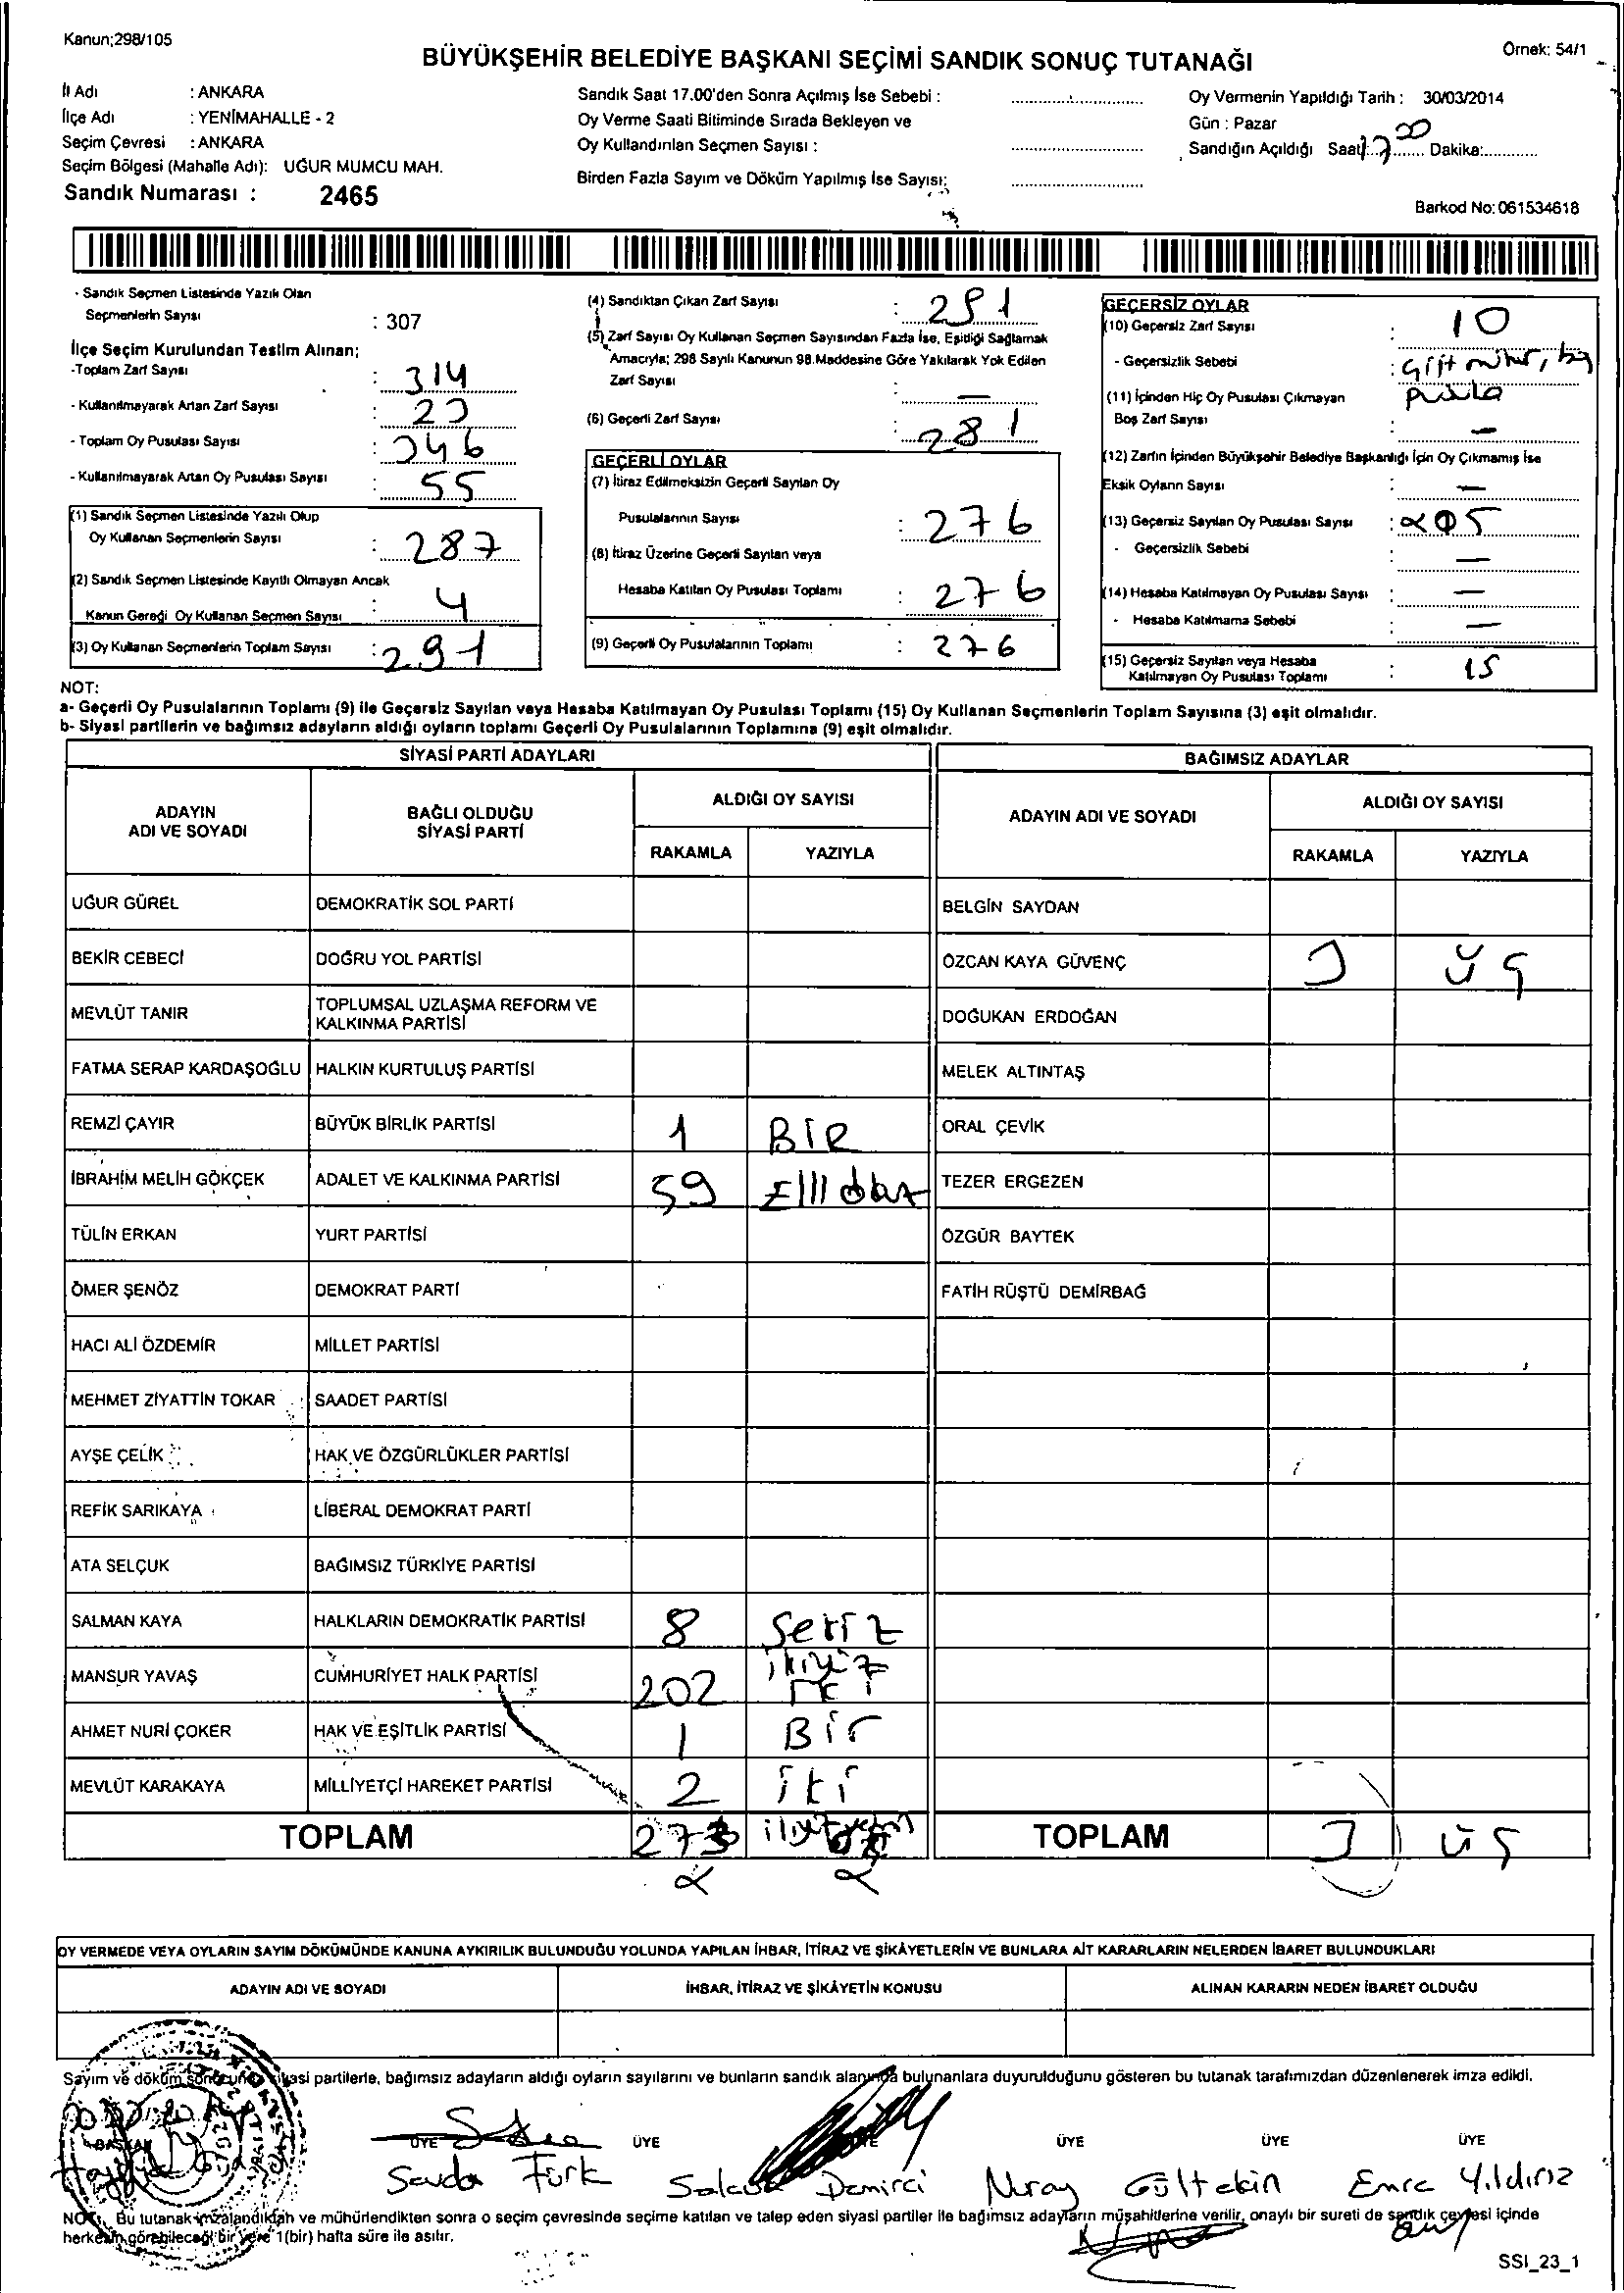 Kanun;298/105
Örnek: 54/1
BÜYÜKŞEHİR BELEDİYE BAŞKANI SEÇİMİ SANDIK SONUÇ TUTANAĞI
İl Adı : ANKARA
İlçe Adı : YENİMAHALLE - 2
Seçim Çevresi : ANKARA
Seçim Bölgesi (Mahalle Adı): UĞUR MUMCU MAH.
Sandık Numarası : 2465
Sandık Saat 17.00'den Sonra Açılmış İse Sebebi :
Oy Verme Saati Bitiminde Sırada Bekleyen ve
Oy Kullandırılan Seçmen Sayısı :
Birden Fazla Sayım ve Döküm Yapılmış İse Sayısı:
Oy Vermenin Yapıldığı Tarih : 30/03/2014
Gün : Pazar
Sandığın Açıldığı Saat 17 00 Dakika:
Barkod No: 061534618
- Sandık Seçmen Listesinde Yazılı Olan
Seçmenlerin Sayısı : 307
İlçe Seçim Kurulundan Teslim Alınan;
-Toplam Zarf Sayısı : 314
- Kullanılmayarak Artan Zarf Sayısı : 23
- Toplam Oy Pusulası Sayısı : 346
- Kullanılmayarak Artan Oy Pusulası Sayısı : 55
(1) Sandık Seçmen Listesinde Yazılı Olup
Oy Kullanan Seçmenlerin Sayısı : 287
(2) Sandık Seçmen Listesinde Kayıtlı Olmayan Ancak
Kanun Gereği Oy Kullanan Seçmen Sayısı : 4
(3) Oy Kullanan Seçmenlerin Toplam Sayısı : 291
(4) Sandıktan Çıkan Zarf Sayısı : 291
(5) Zarf Sayısı Oy Kullanan Seçmen Sayısından Fazla İse, Eşitliği Sağlamak
Amacıyla; 298 Sayılı Kanunun 98.Maddesine Göre Yakılarak Yok Edilen
Zarf Sayısı : —
(6) Geçerli Zarf Sayısı : 281
GEÇERLİ OYLAR
(7) İtiraz Edilmeksizin Geçerli Sayılan Oy
Pusulalarının Sayısı : 276
(8) İtiraz Üzerine Geçerli Sayılan veya
Hesaba Katılan Oy Pusulası Toplamı : 276
(9) Geçerli Oy Pusulalarının Toplamı : 276
GEÇERSİZ OYLAR
(10) Geçersiz Zarf Sayısı : 10
- Geçersizlik Sebebi : Çift mühür, boş
pusula
(11) İçinden Hiç Oy Pusulası Çıkmayan
Boş Zarf Sayısı : —
(12) Zarfın İçinden Büyükşehir Belediye Başkanlığı İçin Oy Çıkmamış İse
Eksik Oyların Sayısı : —
(13) Geçersiz Sayılan Oy Pusulası Sayısı : 5
- Geçersizlik Sebebi : —
(14) Hesaba Katılmayan Oy Pusulası Sayısı : —
- Hesaba Katılmama Sebebi : —
(15) Geçersiz Sayılan veya Hesaba
Katılmayan Oy Pusulası Toplamı : 15
NOT:
a- Geçerli Oy Pusulalarının Toplamı (9) ile Geçersiz Sayılan veya Hesaba Katılmayan Oy Pusulası Toplamı (15) Oy Kullanan Seçmenlerin Toplam Sayısına (3) eşit olmalıdır.
b- Siyasi partilerin ve bağımsız adayların aldığı oyların toplamı Geçerli Oy Pusulalarının Toplamına (9) eşit olmalıdır.
SİYASİ PARTİ ADAYLARI
ADAYIN ADI VE SOYADI
BAĞLI OLDUĞU SİYASİ PARTİ
ALDIĞI OY SAYISI
RAKAMLA YAZIYLA
UĞUR GÜREL DEMOKRATİK SOL PARTİ
BEKİR CEBECİ DOĞRU YOL PARTİSİ
MEVLÜT TANIR TOPLUMSAL UZLAŞMA REFORM VE KALKINMA PARTİSİ
FATMA SERAP KARDAŞOĞLU HALKIN KURTULUŞ PARTİSİ
REMZİ ÇAYIR BÜYÜK BİRLİK PARTİSİ 1 BİR
İBRAHİM MELİH GÖKÇEK ADALET VE KALKINMA PARTİSİ 59 Ellidokuz
TÜLİN ERKAN YURT PARTİSİ
ÖMER ŞENÖZ DEMOKRAT PARTİ
HACI ALİ ÖZDEMİR MİLLET PARTİSİ
MEHMET ZİYATTİN TOKAR SAADET PARTİSİ
AYŞE ÇELİK HAK VE ÖZGÜRLÜKLER PARTİSİ
REFİK SARIKAYA LİBERAL DEMOKRAT PARTİ
ATA SELÇUK BAĞIMSIZ TÜRKİYE PARTİSİ
SALMAN KAYA HALKLARIN DEMOKRATİK PARTİSİ 8 Sekiz
MANSUR YAVAŞ CUMHURİYET HALK PARTİSİ 202 ikiyüz iki
AHMET NURİ ÇOKER HAK VE EŞİTLİK PARTİSİ 1 Bir
MEVLÜT KARAKAYA MİLLİYETÇİ HAREKET PARTİSİ 2 iki
TOPLAM 273
BAĞIMSIZ ADAYLAR
ADAYIN ADI VE SOYADI
ALDIĞI OY SAYISI
RAKAMLA YAZIYLA
BELGİN SAYDAN
ÖZCAN KAYA GÜVENÇ 3 üç
DOĞUKAN ERDOĞAN
MELEK ALTINTAŞ
ORAL ÇEVİK
TEZER ERGEZEN
ÖZGÜR BAYTEK
FATİH RÜŞTÜ DEMİRBAĞ
TOPLAM 3 üç
OY VERMEDE VEYA OYLARIN SAYIM DÖKÜMÜNDE KANUNA AYKIRILIK BULUNDUĞU YOLUNDA YAPILAN İHBAR, İTİRAZ VE ŞİKÂYETLERİN VE BUNLARA AİT KARARLARIN NELERDEN İBARET BULUNDUKLARI
ADAYIN ADI VE SOYADI İHBAR, İTİRAZ VE ŞİKÂYETİN KONUSU ALINAN KARARIN NEDEN İBARET OLDUĞU
Sayım ve döküm sonucunda siyasi partilerle, bağımsız adayların aldığı oyların sayılarını ve bunların sandık alanında bulunanlara duyurulduğunu gösteren bu tutanak tarafımızdan düzenlenerek imza edildi.
BAŞKAN ÜYE ÜYE ÜYE ÜYE ÜYE ÜYE
Sevda Türk Demirci Nuray Gültekin Emre Yıldırız
NOT: Bu tutanak imzalandıktan ve mühürlendikten sonra o seçim çevresinde seçime katılan ve talep eden siyasi partiler ile bağımsız adayların müşahitlerine verilir, onaylı bir sureti de sandık çevresi içinde
herkesin görebileceği bir yere 1(bir) hafta süre ile asılır.
SSI_23_1